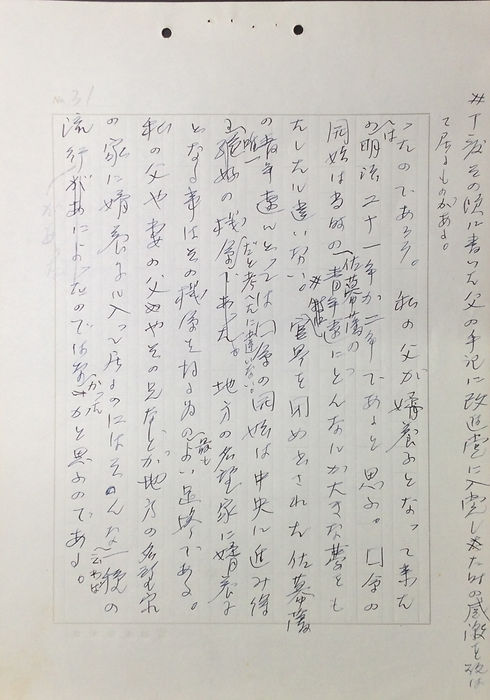 No. 31
＃丁度その頃に書いた父の手記に改進党に入党した時の感激を記し
て居るものがある。
ったのであろう。私の父が婿養子となって来た
のは明治二十一年か二年であると思ふ。国会の
開始は当時の佐幕藩の青年達にどんなにか大きな夢をも
たしたに違いない。＃官界を閉め出された佐幕藩
の青年達にとっては国会の開始は中央に進み得
る唯一絶好の機会だと考へたに違いない。地方の名望家に婿養子
となる事はその機会を捉る為の最もよい足場である。
私の父や妻の父やその兄などが地方の名望家
の家に婿養子に入って居るのにはそんな一種の
流行があったのではなかったかと思ふのである。